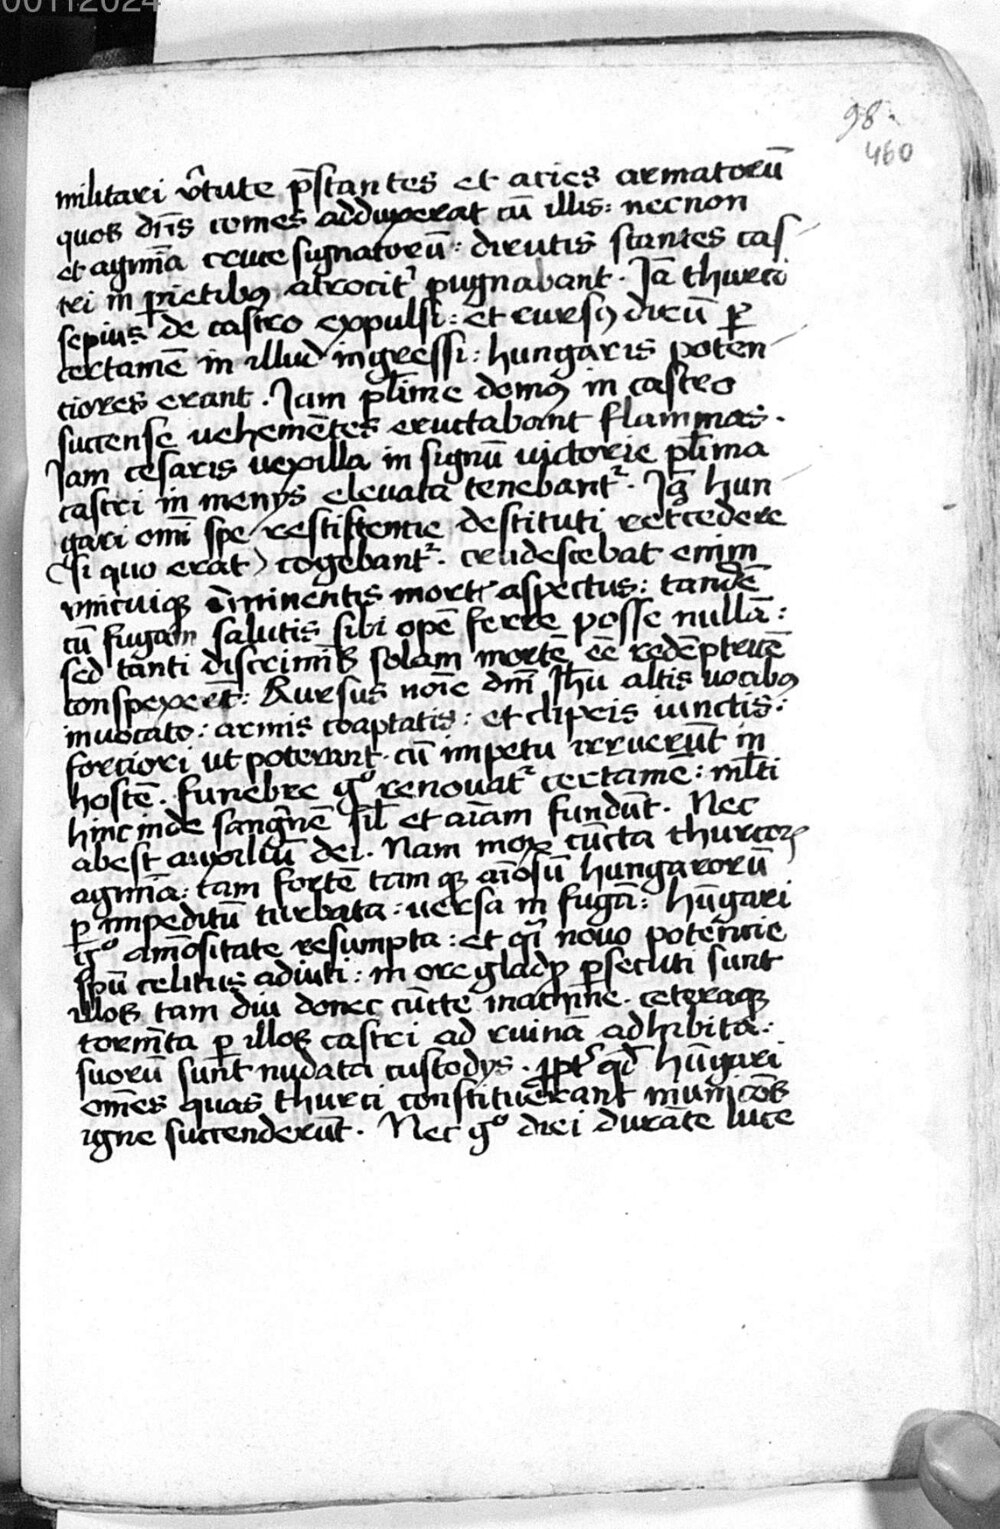 00112024
98.
460
militari v̂tute p̄stantes et acies armatorū
quos dn̄s comes adduxerat cū illis: necnon
et agmīa cruce signatorū: dirutis stantes cas
tri in pietibus atrociť pugnabant. Jā thurci
sepius de castro expulsi: et cursus dicū per
certamē in illud ingressi: hungaris poten
ciores erant. Jam pl̄ime domus in castro
succense vehemētes eructabant flammas.
Jam cesaris vexilla in signū victorie pl̄ima
castri in menys elevata tenebantᷣ. Jā hun
gari omī spe restistencie destituti retᷓcedere
(si quo erat) cogebantᷣ. crudescebat enim
vnicuique īminentis mortis aspectus: tandē
cū fugam salutis sibi opē ferre posse nullā:
sed tanti discriminis solam mortē eē redēptricē
conspexert̄: Rursus noīe dnī Jhū altis vocibus
invocato: armis coaptatis: et clipeis iunctis:
forciori ut poterant. cū impetu irruerūt in
hostē. Funebre gͦ renovatᷣ certamē: ml̄ti
hinc inde sangnē sil̄ et aīam fundūt. Nec
abest auxiliū dei. Nam mox cūcta thurcoꝝ
agmīa: tam fortē tam que aīosū hungarorū
ꝑ impeditū turbata: versa in fugā: hūgari
gͦ amōsitate resumpta: et qͣi novo potencie
spū celitus adiuti: in ore gladӱ ꝑsecuti sunt
illos tam diu donec cūcte machīne. ceteraque
tormēta ꝑ illos castri ad ruinā adhibita:
suorū sunt nudata custodys. ꝓptᷣ qd̄ hūgari
omēs quas thurci constituerant municōes
igne succenderūt. Nec gͦ diei durāte luce